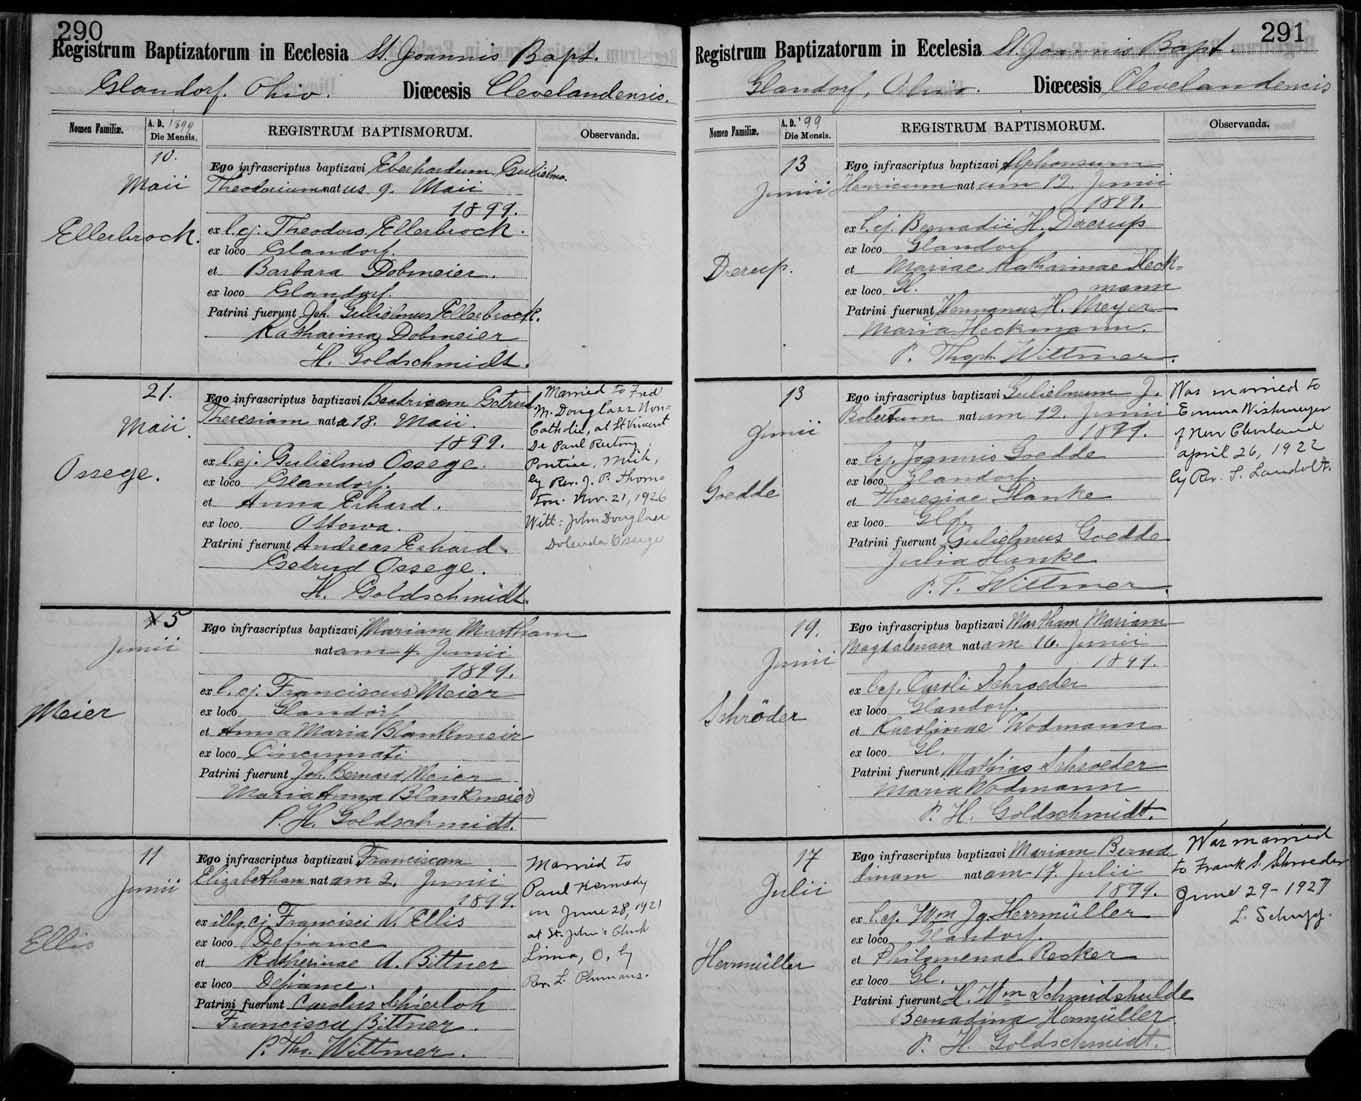 290
Registrum Baptizatorum in Ecclesia St. Joannis Bapt.
Glandorf, Ohio. Diœcesis Clevelandensis.
Nomen Familiæ. A. D. 1899 Die Mensis. REGISTRUM BAPTISMORUM. Observanda.
10.
Maii
Ellerbrock.
Ego infrascriptus baptizavi Eberhardum Gulielm.
Theodorum natus 9. Maii
1899.
ex l. cj. Theodors Ellerbrock.
ex loco Glandorf.
et Barbara Dobmeier.
ex loco Glandorf.
Patrini fuerunt Joh. Gulielmus Ellerbrock.
Katharina Dobmeier
H. Goldschmidt.
21.
Maii.
Ossege.
Ego infrascriptus baptizavi Beatricem Getrud
Theresiam nata 18. Maii.
1899.
ex l. cj. Gulielmo Ossege.
ex loco Glandorf.
et Anna Erhard.
ex loco Ottowa.
Patrini fuerunt Andreas Erhard.
Getrud Ossege.
H. Goldschmidt.
Married to Fred
M. Douglass Non-
Catholic, at St Vincent
De Paul Rectory
Pontiac, Mich,
by Rev. J. P. Thorn
ton. Nov. 21, 1926
Witt: John Douglass
Ossege
5
Junii
Meier
Ego infrascriptus baptizavi Mariam Martham
natam 4. Junii
1899.
ex l. cj. Franciscus Meier
ex loco Glandorf
et Anna Maria Blankmeier
ex loco Cincinnati
Patrini fuerunt Joh. Bernard Meier
Maria Anna Blankmeier
P. H. Goldschmidt.
11
Junii
Ellis
Ego infrascriptus baptizavi Franciscam
Elizabetham natam 2. Junii
1899.
ex illeg. cj. Francisci N. Ellis
ex loco Defiance
et Katherinae A. Bittner
ex loco Defiance.
Patrini fuerunt Carolus Schierloh
Francisca Bittner.
P. Th. Wittmer.
Married to
Paul Kennedy
on June 28, 1921
at St. John's Chch
Lima, O. by
Rev. L. Plumans.
291
Registrum Baptizatorum in Ecclesia St. Joannis Bapt
Glandorf, Ohio. Diœcesis Clevelandensis
Nomen Familiæ. A. D. '99 Die Mensis. REGISTRUM BAPTISMORUM. Observanda.
13
Junii
Derup.
Ego infrascriptus baptizavi Alphonsum
Henricum natum 12. Junii
1899.
ex l. cj. Bernadii H. Drerup
ex loco Glandorf
et Mariae Katharinae Heck=
ex loco Gl. mann
Patrini fuerunt Hermanus H. Meyer
Maria Heckmann.
P. Theoph. Wittmer.
13
Junii
Goedde
Ego infrascriptus baptizavi Gulielmum J.
Robertum natum 12. Junii
1899.
ex l. cj. Joannis Goedde
ex loco Glandorf.
et Theresiae Hanke
ex loco Gl.
Patrini fuerunt Gulielmus Goedde
Julia Hanke
P. T. Wittmer.
Was married to
Emma Wishmeyer
of New Cleveland
april 26, 1922
by Rev. F. Landolt.
19.
Junii
Schröder
Ego infrascriptus baptizavi Martham Mariam
Magdalenam natam 16. Junii
1899.
ex l. cj. Caroli Schroeder
ex loco Glandorf.
et Karolinae Wodmann
ex loco Gl.
Patrini fuerunt Mathias Schroeder
Maria Wodmann
P. H. Goldschmidt.
17
Julii
Herrmüller
Ego infrascriptus baptizavi Mariam Bernad
dinam natam 17. Julii
1899.
ex l. cj. Wm Jg. Herrmüller
ex loco Glandorf
et Philomenae Recker
ex loco Gl.
Patrini fuerunt H. Wm Schmidshulde
Bernadina Hermüller
P. H. Goldschmidt.
Was married
to Frank S. Schroeder
June 29-1927
L. Schupp.